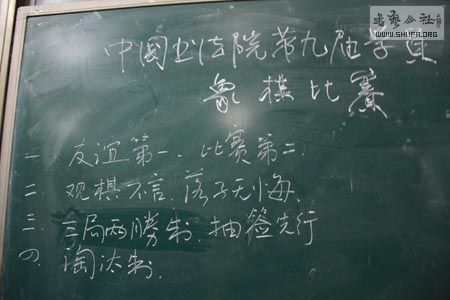 书艺公社
WWW.SHUFA.ORG
中国书法院第九届学员
象棋比赛
一、友谊第一、比赛第二.
二、观棋不言、落子无悔、
三、三局两勝制、抽签先行
四、淘汰制.